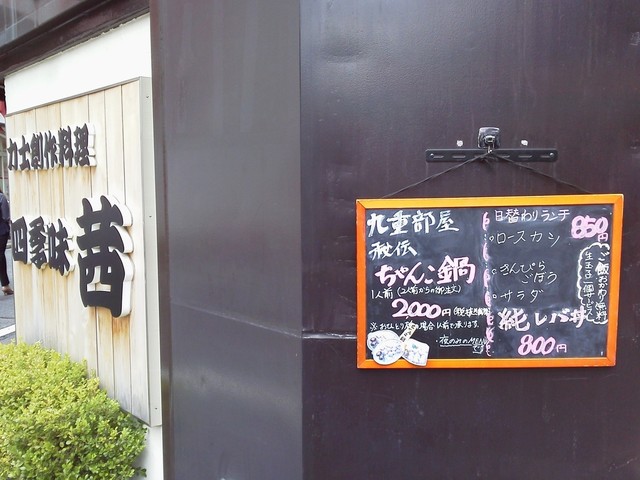 力士創作料理
四季味
茜
九重部屋
秘伝
ちゃんこ鍋
1人前(2人前からの御注文)
2,000円
※おひとり様の場合1人前で承ります。
・夜のみのMENU
日替わりランチ
850円
・ロースカツ
・きんぴら
ごぼう
・サラダ
ご飯おかわり無料
生玉子一個サービス
純レバ丼
800円